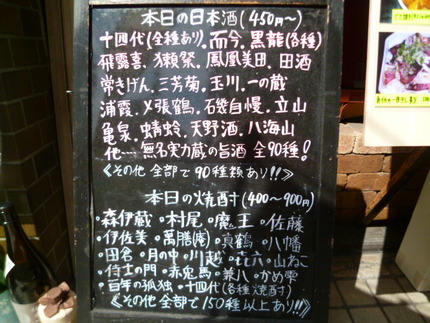 本日の日本酒(450円~)
十四代(全種あり).而今.黒龍(各種)
飛露喜.獺祭.鳳凰美田.田酒
常きげん.三芳菊.玉川.一の蔵
浦霞.〆張鶴.石鎚自慢.立山
亀泉.蜻蛉.天野酒.八海山
他…無名実力蔵の旨酒 全90種!
《その他 全部で90種類あり!!》
本日の焼酎(400~900円)
・森伊蔵・村尾・魔王・佐藤
・伊佐美・萬膳(庵)・真鶴・八幡
・田名・月の中・川越・㐂六・山ねこ
・侍士の門・赤兎馬・兼八・かめ雫
・百年の孤独・十四代(各種焼酎)
《その他全部で150種以上あり!!》